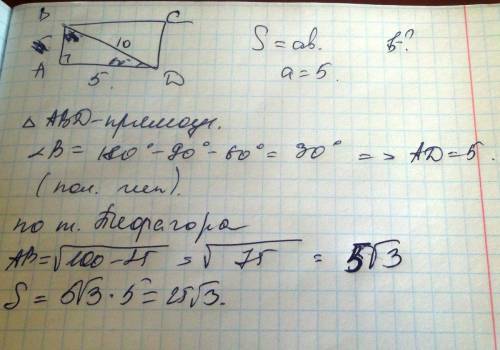 B C
10
A 5. 60° D
S = ab. b-?
a = 5.
△ ABD - прямоуг.
∠B = 180° - 90° - 60° = 30° => AD = 5.
(пол. гип).
по т. Пифагора
AB = √100 - 25 = √75 = 5√3
S = 5√3 · 5 = 25√3.